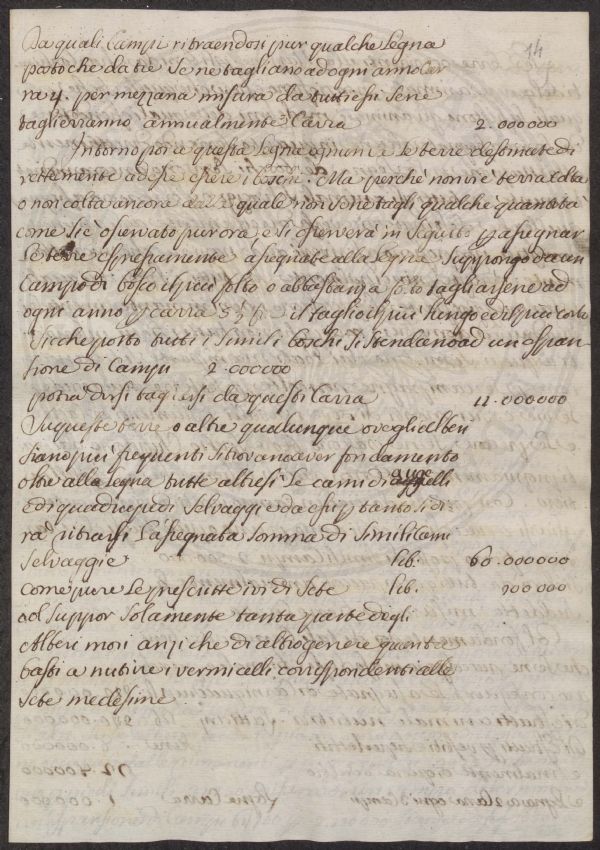 14
Da quali Campi ritraendosi pur qualche Legna
postoche da tre se ne tagliano ad ogni anno Car
ra 4. per mezzana misura da tutti essi se ne
taglieranno annualmente Carra 2.000000
Intorno poi a questa Legna le terre destinate di
rettamente ad esse i boschi. Ma perchè non v'è terra colta
o non colta ancora dalla quale non se ne tagli qualche quantità
come si è osservato pur ora, e si osserverà in seguito assegnar
le terre espressamente assegnate alla Legna suppongo da un
Campo di bosco più folto o abbastanza folto tagliarsene ad
ogni anno Carra il taglio il più lungo ed il più corto
Sicche posto tutti i simili boschi si stendano ad un espan
sione di Campi 2.000000
potrà dirsi tagliarsi da questi Carra 11.000000
In queste terre o altre qualunque ove gli alberi
siano più frequenti si trovano aver fondamento
oltre alla Legna tutte altresì le carni di augelli
e di quadrupedi selvaggi e da essi pertanto si di
rà ritrarsi l'assegnata somma di simili carni
selvaggie Lib. 60.000000
come pure le prescritte di Sete Lib. 900000
col suppor solamente tanta parte degli
Alberi mori anziche di altro genere quanta
basti a nutrire i vermicelli corrispondenti alle
sete medesime.